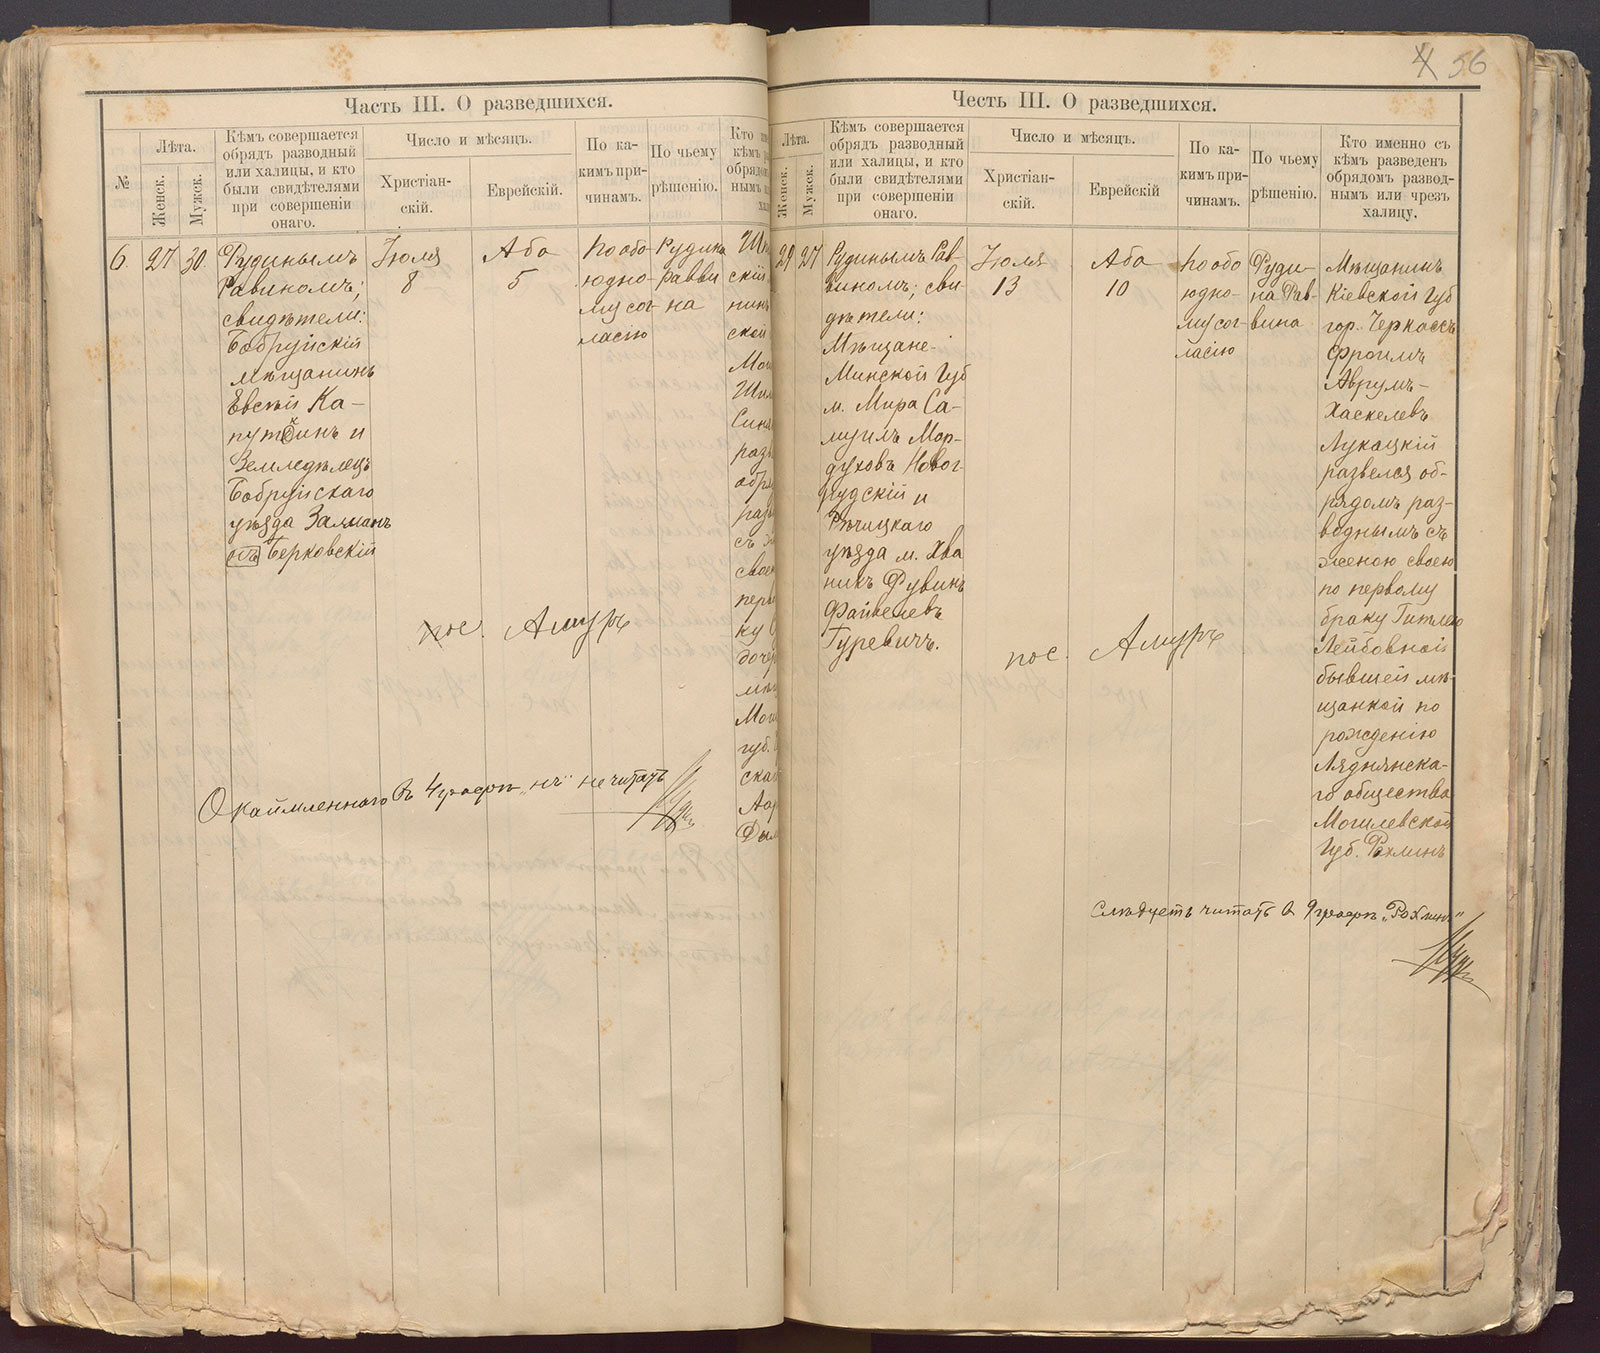 Часть III. О разведшихся.
№
Лѣта.
Женск.
Мужск.
Кѣмъ совершается
обрядъ разводный
или халицы, и кто
были свидѣтелями
при совершеніи
онаго.
Число и мѣсяцъ.
Христіан-
скій.
Еврейскій.
По ка-
кимъ при-
чинамъ.
По чьему
рѣшенію.
Кто
кѣмъ
обрядом
нымъ
6.
27
30.
Рудинымъ
Равиномъ;
свидѣтели:
Бобруйскій
мѣщанинъ
Евсѣй Ка-
Земледѣлецъ
Бобруйскаго
уѣзда Залманъ
Берковскій
Іюля
8
Аба
5
По обо-
юдно-
му сог-
ласію
Рудина
Равви
на
скій
нинъ
ской
Мог
раз
обря
раз
съ
свое
перв
ку
дочер
мѣщ
Мог
губ.
ска
пос. Амуръ
Окаймленнаго въ 4 графѣ „нъ" не читать
4 56
Честь III. О разведшихся.
Лѣта.
Женск.
Мужск.
Кѣмъ совершается
обрядъ разводный
или халицы, и кто
были свидѣтелями
при совершеніи
онаго.
Число и мѣсяцъ.
Христіан-
скій.
Еврейскій
По ка-
кимъ при-
чинамъ.
По чьему
рѣшенію.
Кто именно съ
кѣмъ разведенъ
обрядомъ развод-
нымъ или чрезъ
халицу.
29
27
Рудинымъ Рав-
виномъ; сви-
дѣтели:
Мѣщане-
Минской Губ
м. Мира Са-
муилъ Мор-
духовъ Новог-
рудскій и
Рѣчицкаго
уѣзда м. Хва
никъ Рувинъ
Файвелевъ
Гуревичъ.
Іюля
13
Аба
10
По обо
юдно-
му сог-
ласію
Руди-
на Рав-
вина
Мѣщанинъ
Кіевской Губ
гор. Черкассъ
Фроимъ
Аврумъ-
Хаскелевъ
Лукацкій
развелся об-
рядомъ раз-
воднымъ съ
женою своею
по первому
браку Гитлею
Лейбовной
бывшей мѣ-
щанкой по
рожденію
Ляднянска-
го общества
Могилевской
Губ. Рохлинъ
пос. Амуръ
Слѣдуетъ читать в 9 графѣ „Рохлинъ"